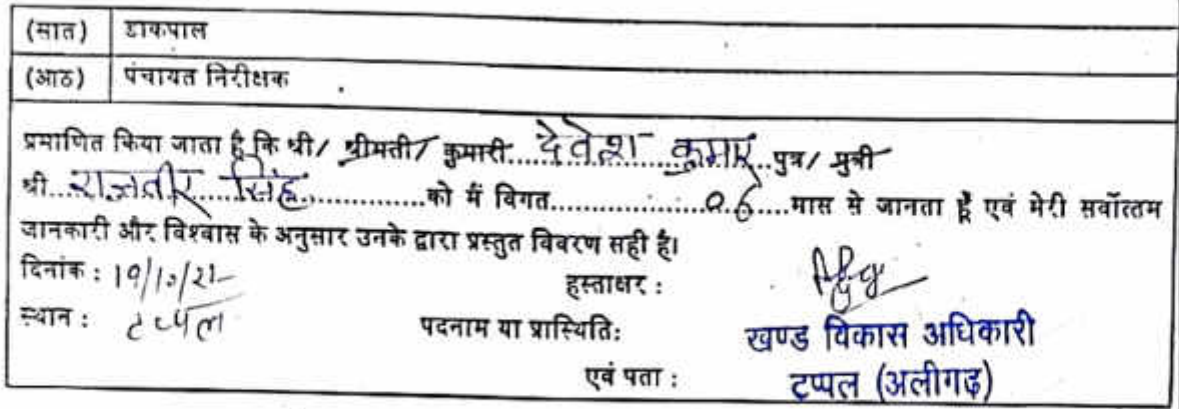 (सात) डाकपाल
(आठ) पंचायत निरीक्षक
प्रमाणित किया जाता है कि श्री/ श्रीमती/ कुमारी....देवेश कुमार....पुत्र/ पुत्री
श्री...राजवीर सिंह..................को मैं विगत....................06.....मास से जानता हूँ एवं मेरी सर्वोत्तम
जानकारी और विश्वास के अनुसार उनके द्वारा प्रस्तुत विवरण सही है।
दिनांक : 19/10/21
हस्ताक्षर :
स्थान : टप्पल
पदनाम या प्रास्थिति: खण्ड विकास अधिकारी
एवं पता : टप्पल (अलीगढ़)